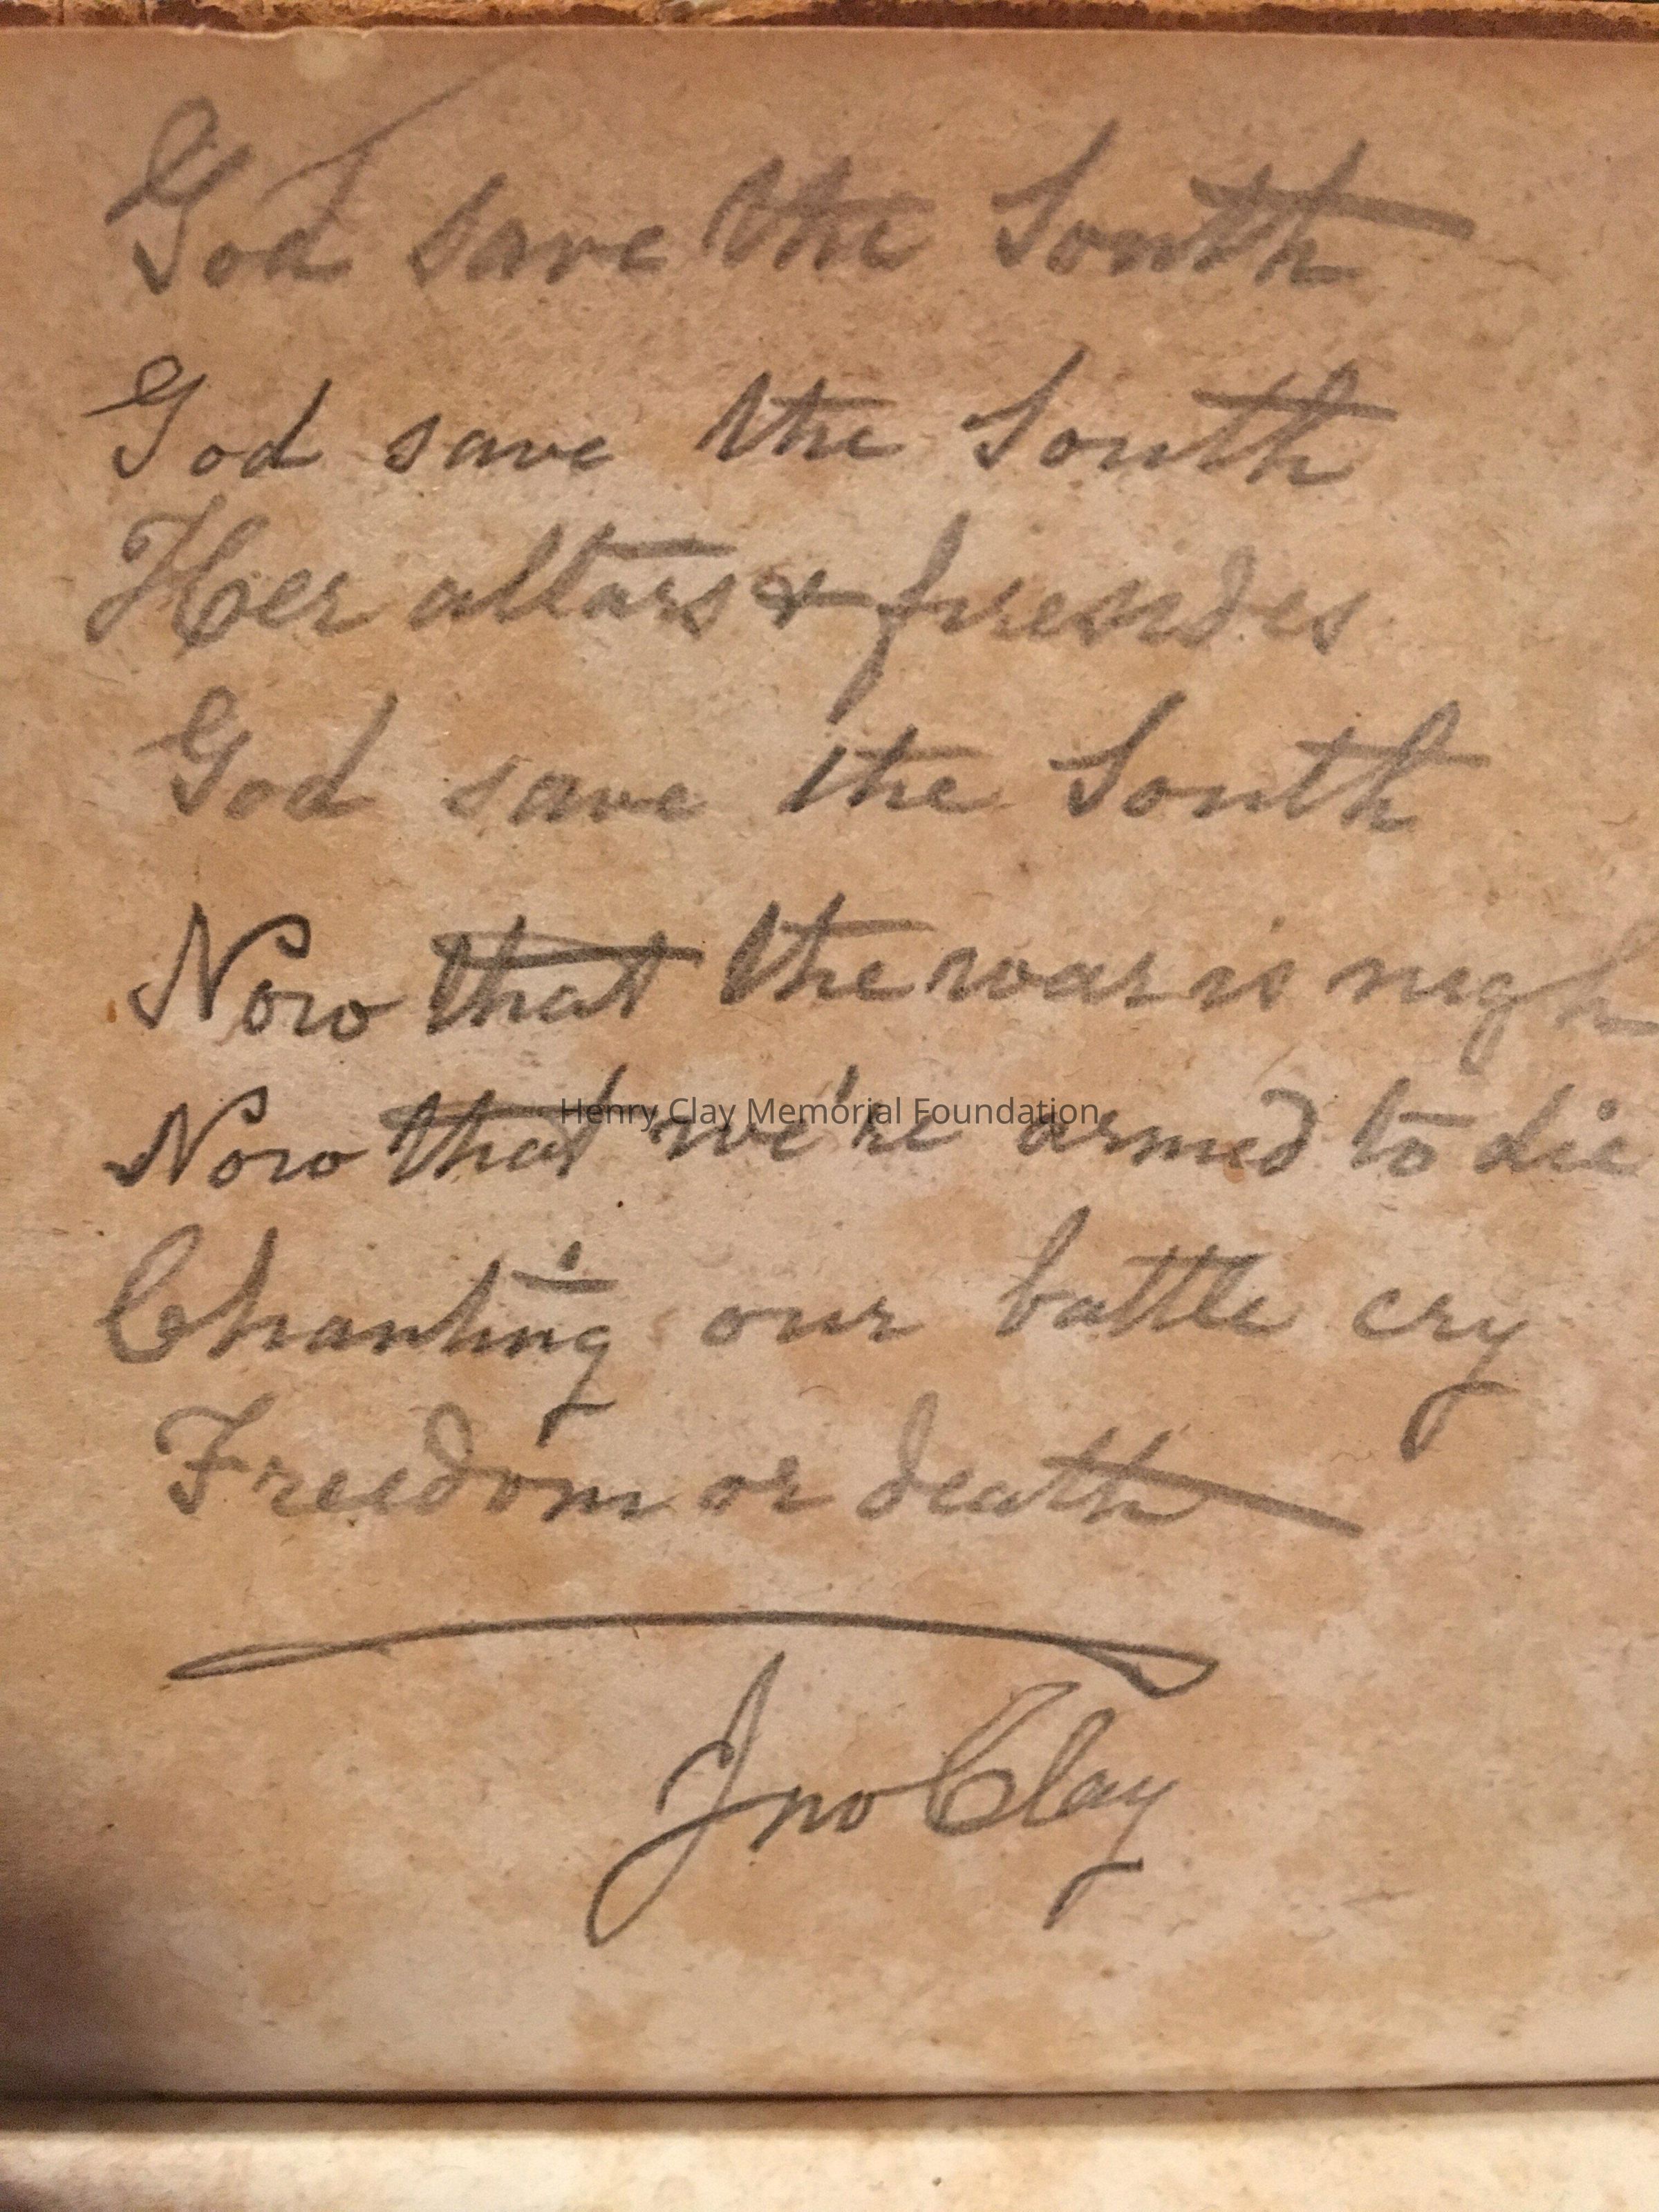 God save the South
God save the South
Her altars & firesides
God save the South
Now that the war is nigh
Now that we're armed to die
Chanting our battle cry
Freedom or death
Jno Clay
Henry Clay Memorial Foundation